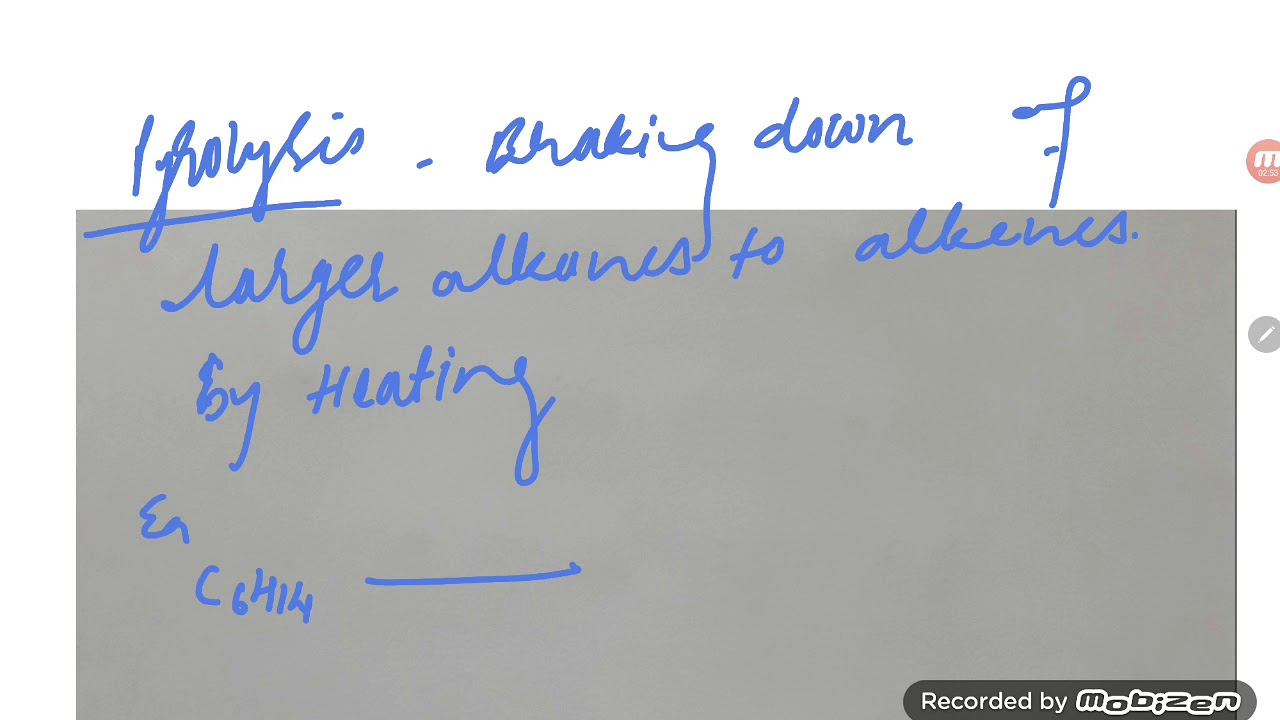 Pyrolysis - Braking down of
larger alkanes to alkenes.
By Heating
Ex
C6H14
02:53
Recorded by Mobizen